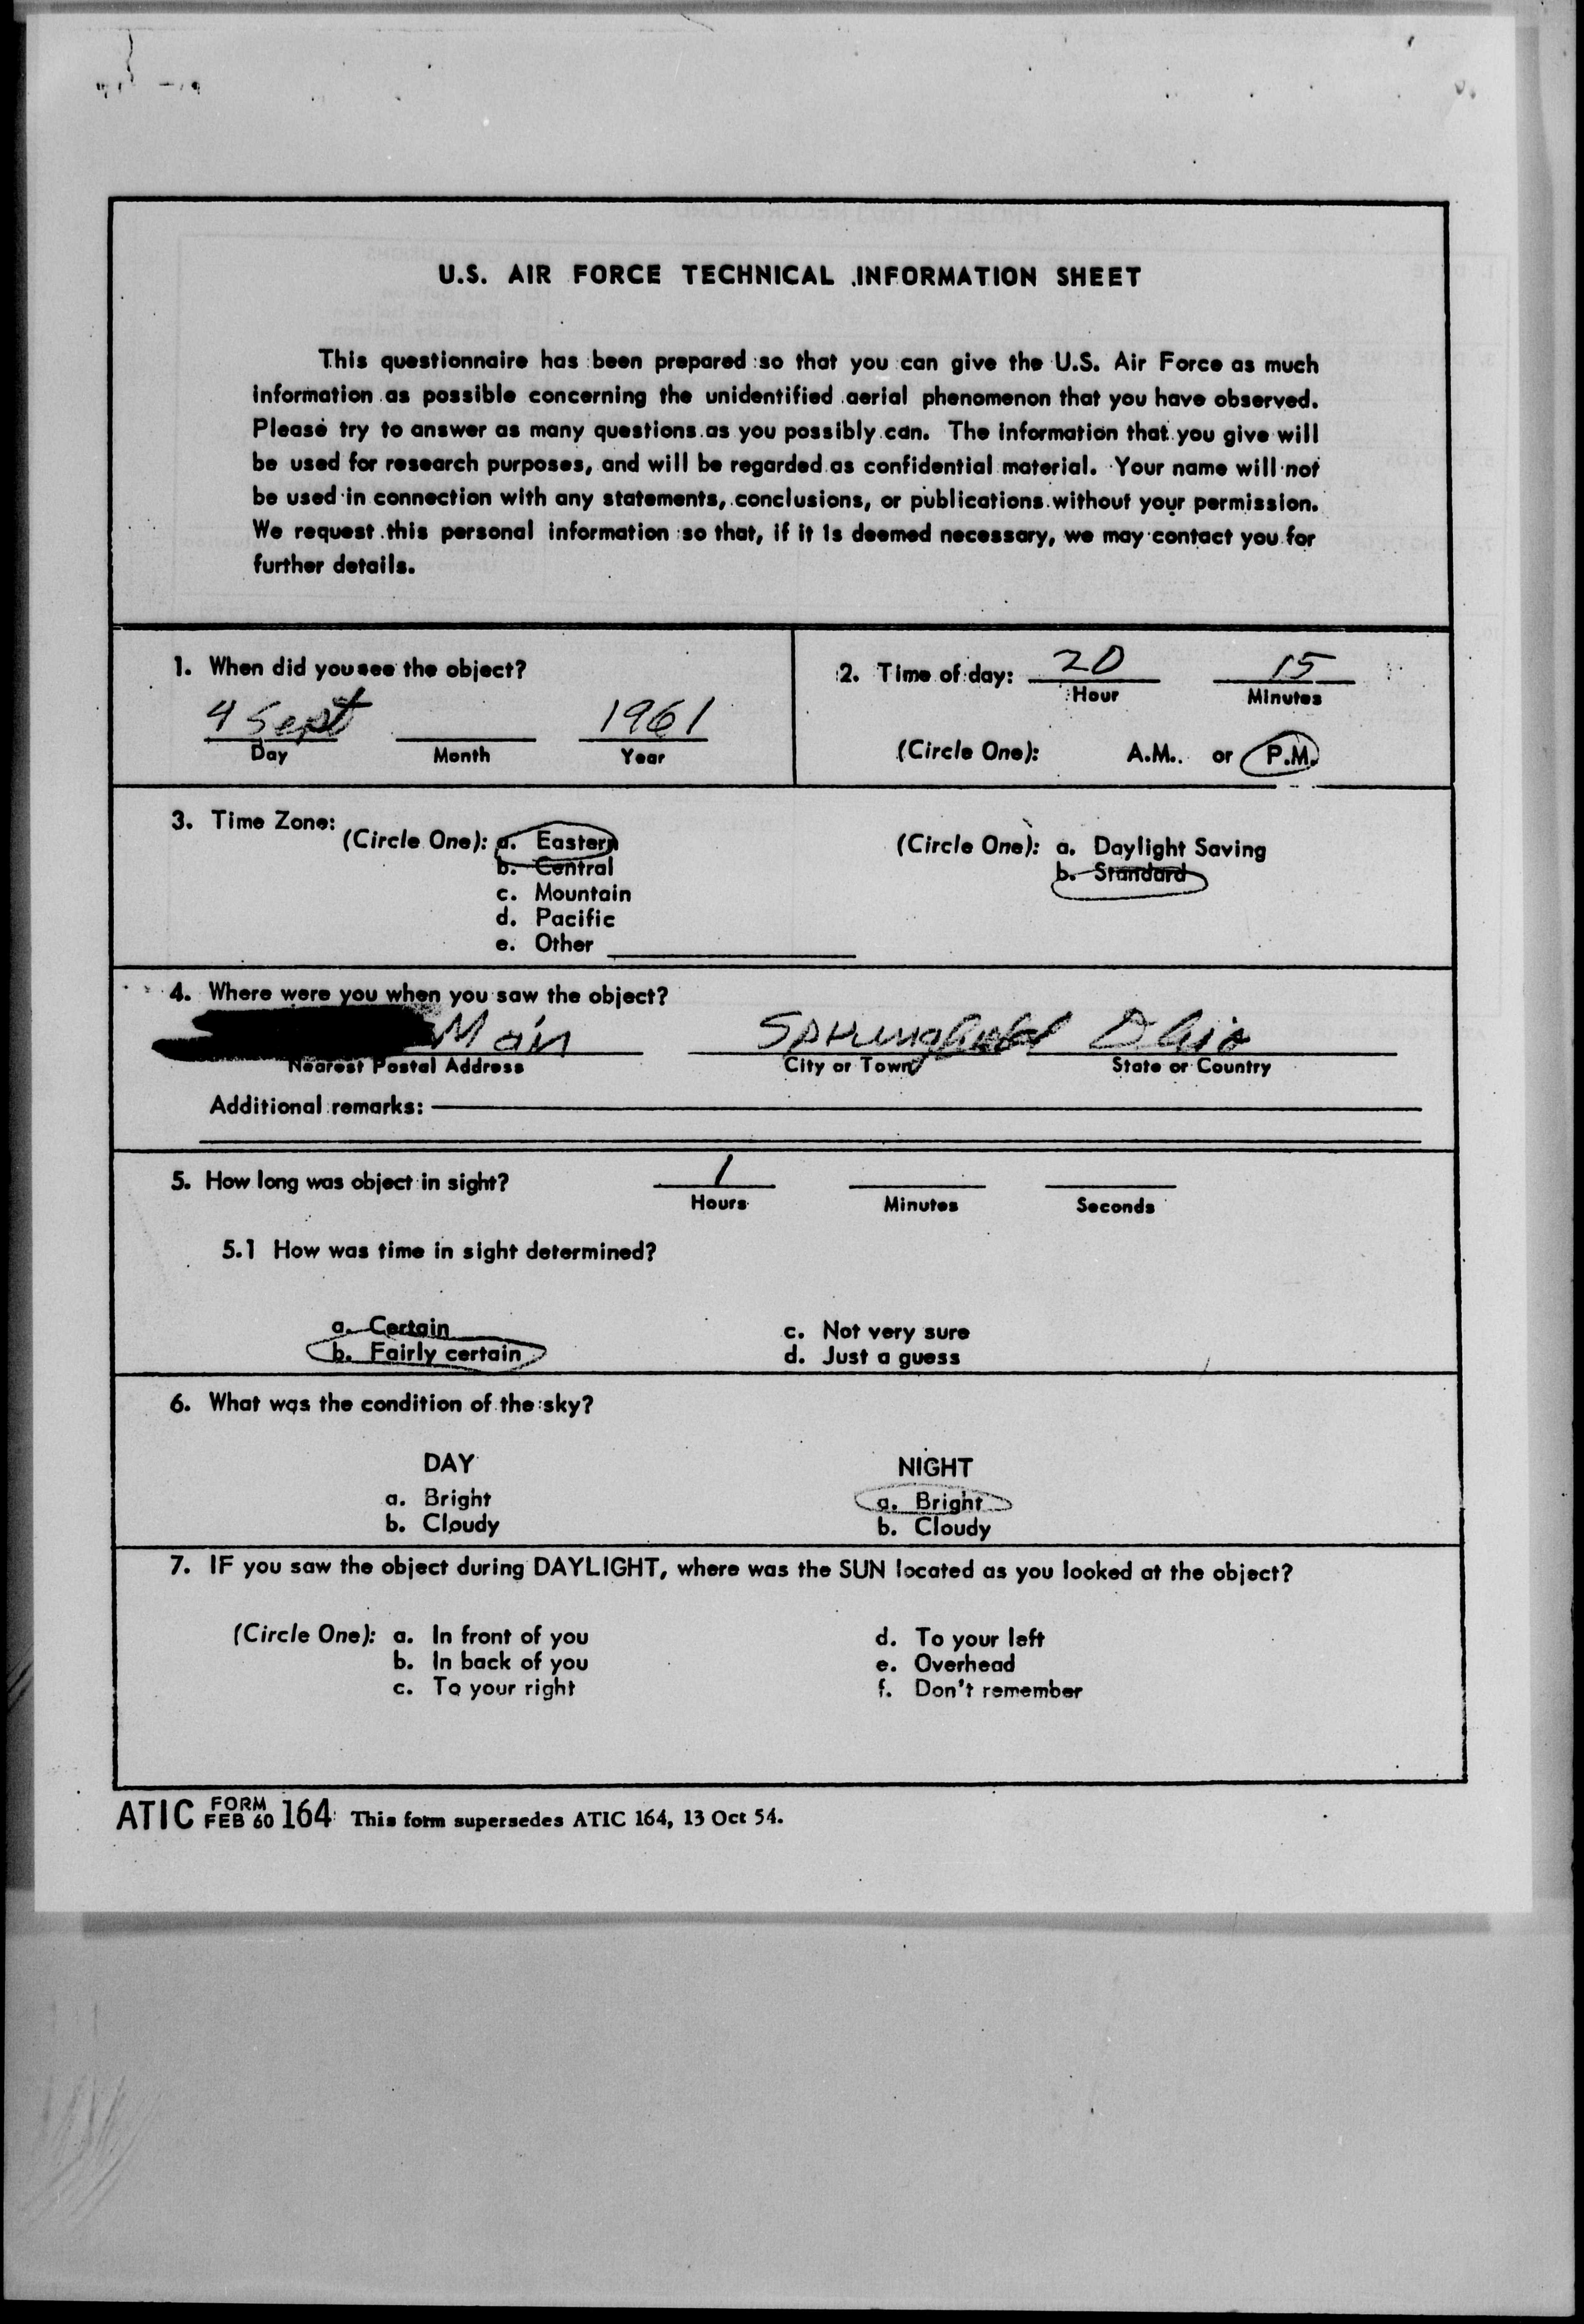 U.S. AIR FORCE TECHNICAL INFORMATION SHEET
This questionnaire has been prepared so that you can give the U.S. Air Force as much
information as possible concerning the unidentified aerial phenomenon that you have observed.
Please try to answer as many questions as you possibly can. The information that you give will
be used for research purposes, and will be regarded as confidential material. Your name will not
be used in connection with any statements, conclusions, or publications without your permission.
We request this personal information so that, if it is deemed necessary, we may contact you for
further details.
1. When did you see the object?
4 Sept 1961
Day Month Year
2. Time of day: 20 15
Hour Minutes
(Circle One): A.M. or P.M.
3. Time Zone:
(Circle One): a. Eastern
b. Central
c. Mountain
d. Pacific
e. Other
(Circle One): a. Daylight Saving
b. Standard
4. Where were you when you saw the object?
Main Springfield Ohio
Nearest Postal Address City or Town State or Country
Additional remarks:
5. How long was object in sight? 1
Hours Minutes Seconds
5.1 How was time in sight determined?
a. Certain c. Not very sure
b. Fairly certain d. Just a guess
6. What was the condition of the sky?
DAY NIGHT
a. Bright a. Bright
b. Cloudy b. Cloudy
7. IF you saw the object during DAYLIGHT, where was the SUN located as you looked at the object?
(Circle One): a. In front of you d. To your left
b. In back of you e. Overhead
c. To your right f. Don't remember
ATIC FORM FEB 60 164 This form supersedes ATIC 164, 13 Oct 54.